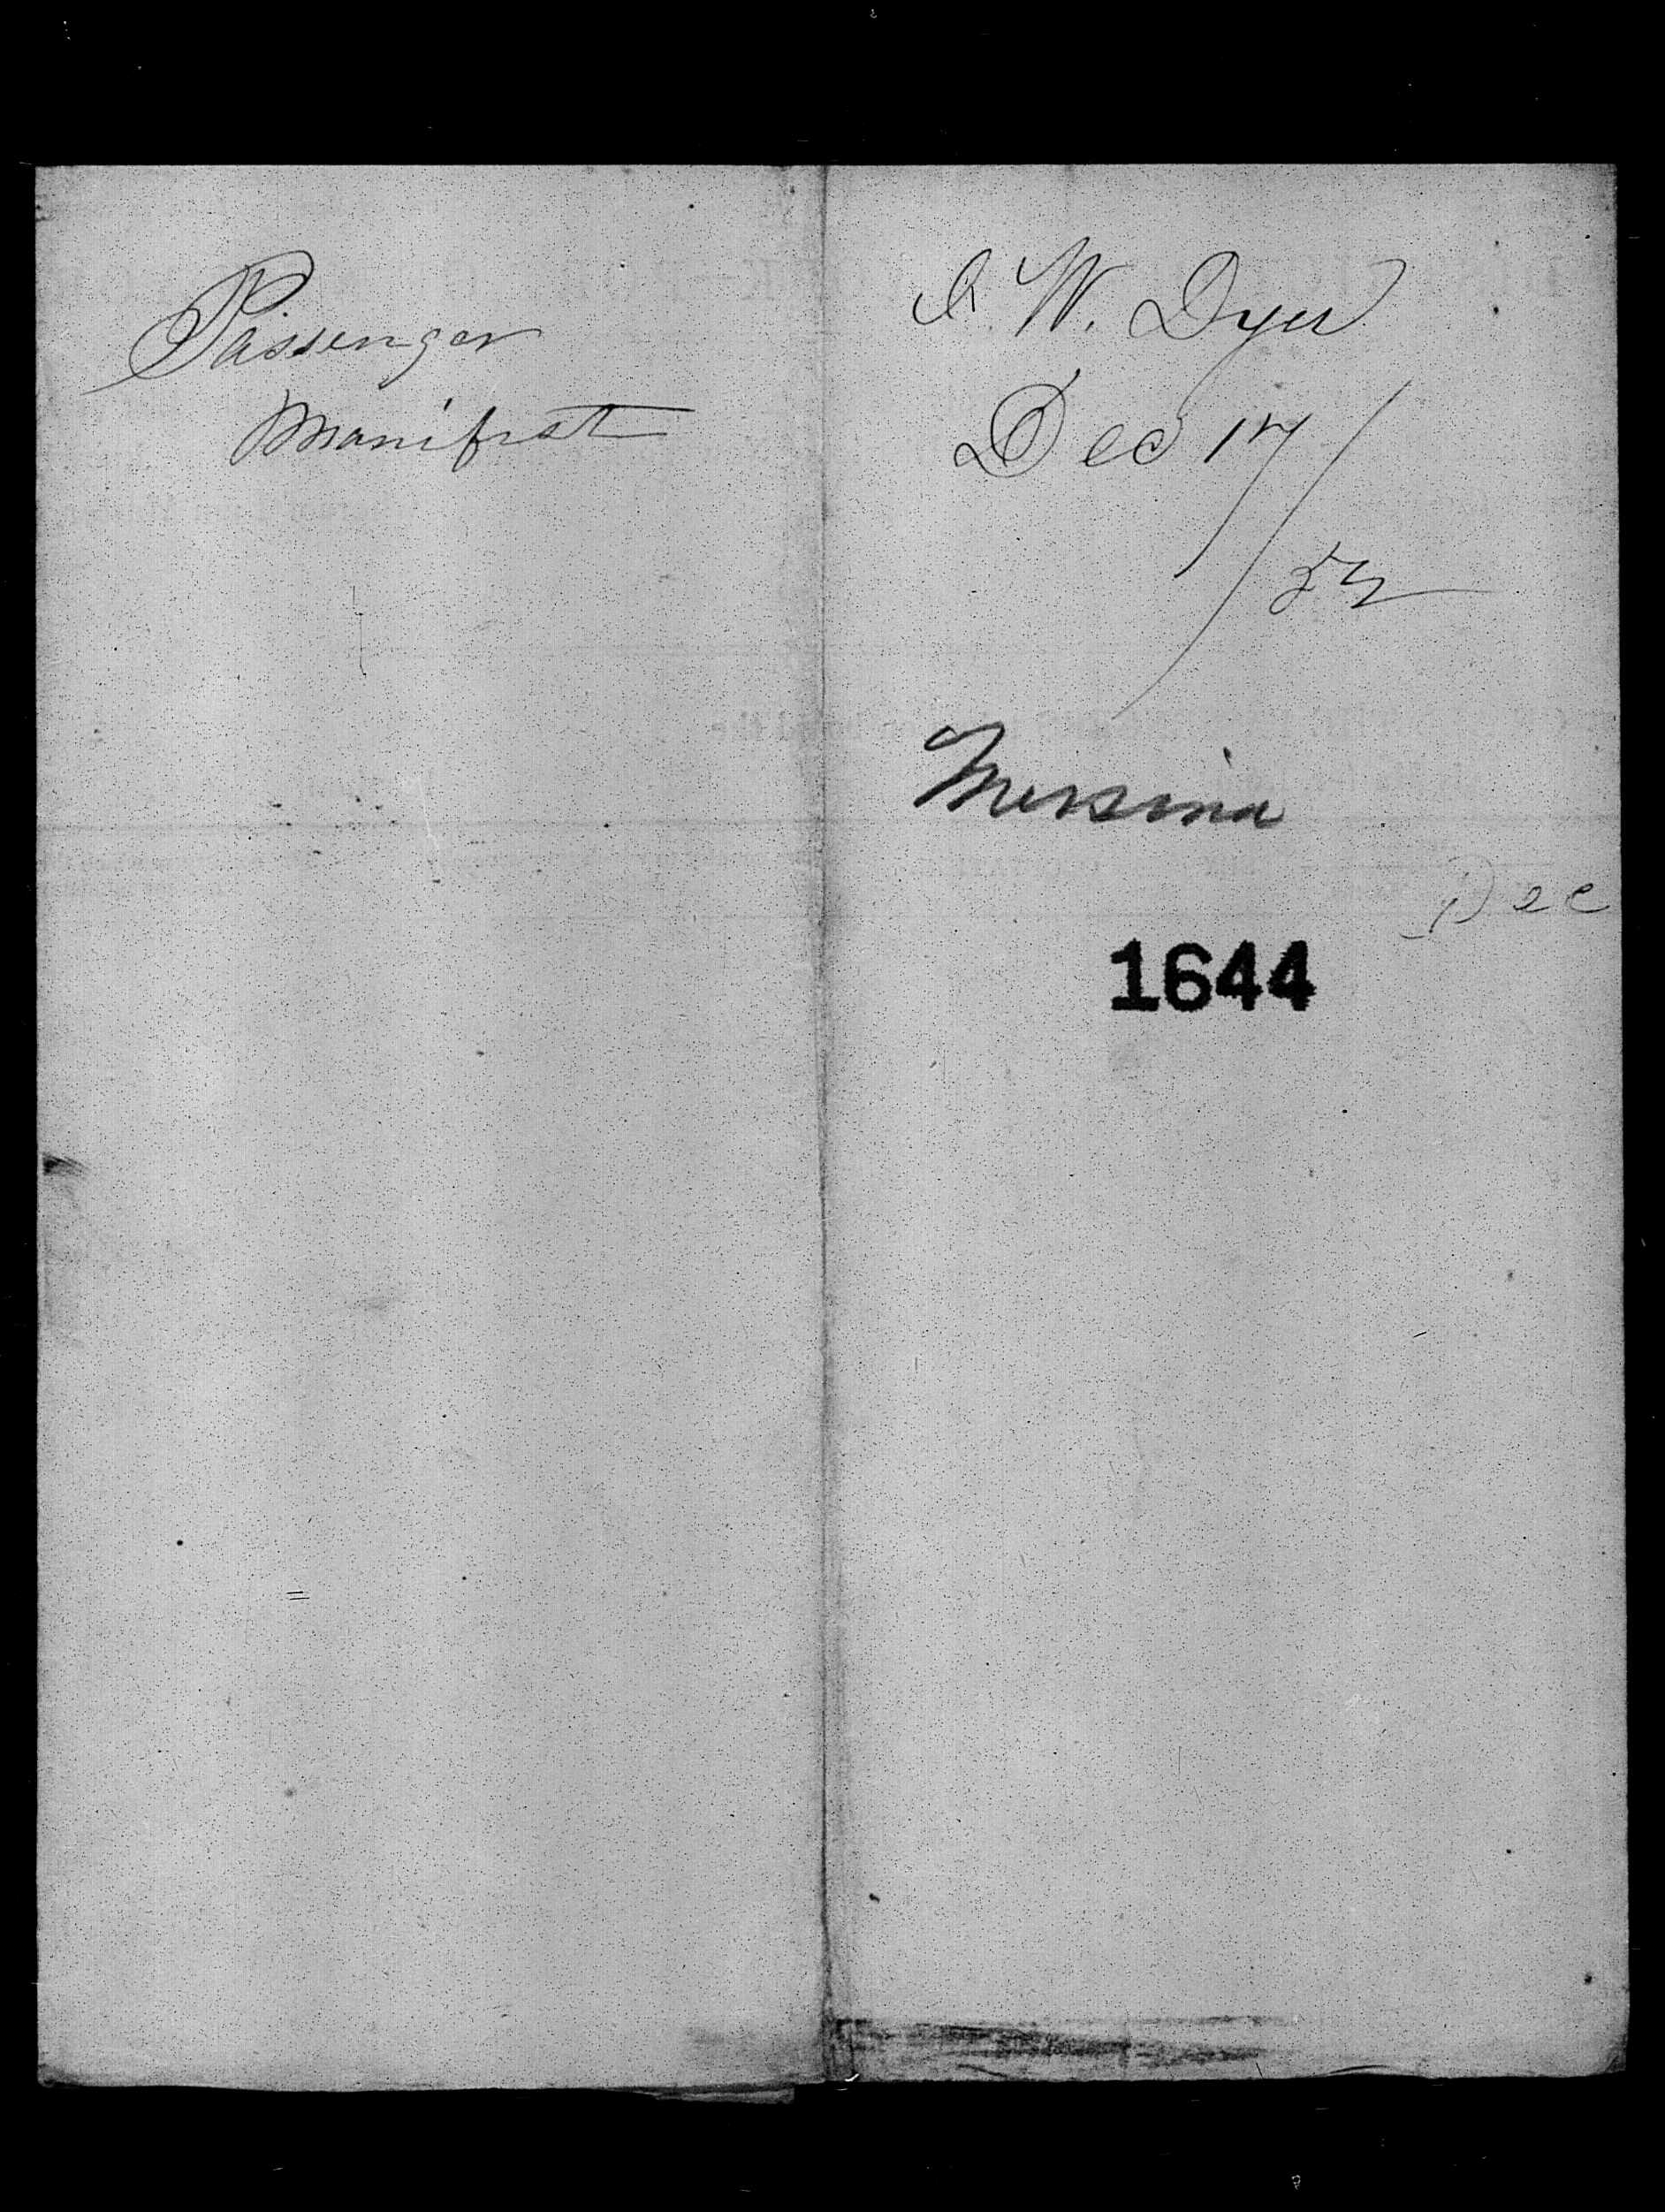 Passenger
Manifest
I. W. Dyer
Dec 17/52
Messina
Dec
1644